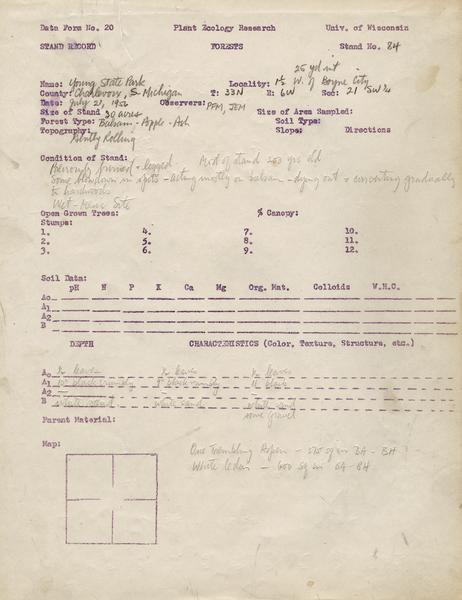 Data Form No. 20 Plant Ecology Research Univ. of Wisconsin
STAND RECORD FORESTS Stand No. 84
Name: Young State Park Locality: 1½ W. of Boyne City
County: Charlevoix, Michigan T: 33N R: 6W Sec: 21 SW¼
Date: July 21, 1956 Observers: PFM, JEM
Size of Stand 30 acres Size of Area Sampled:
Forest Type: Balsam - Ash Soil Type:
Topography: Slope: Directions
Gently Rolling
Condition of Stand: Most of stand 200 yrs old
Previously - logged
Some blowdown in spots - acting mostly on balsam - dying out + converting gradually
to hardwoods
Wet-Mesic Site
Open Grown Trees: % Canopy:
Stumps:
1. 4. 7. 10.
2. 5. 8. 11.
3. 6. 9. 12.
Soil Data:
pH N P K Ca Mg Org. Mat. Colloids W.H.C.
A₀
A₁
A₂
B
DEPTH CHARACTERISTICS (Color, Texture, Structure, etc.)
A₀ ½ leaves ½ leaves ½ leaves
A₁ 10" black crumbly 8" black crumbly 11 black
A₂
B white sand white sand white sand
some gravel
Parent Material:
Map:
One Trembling Aspen - 515 sq in BA - BH
White Cedar - 600 sq in BA - BH